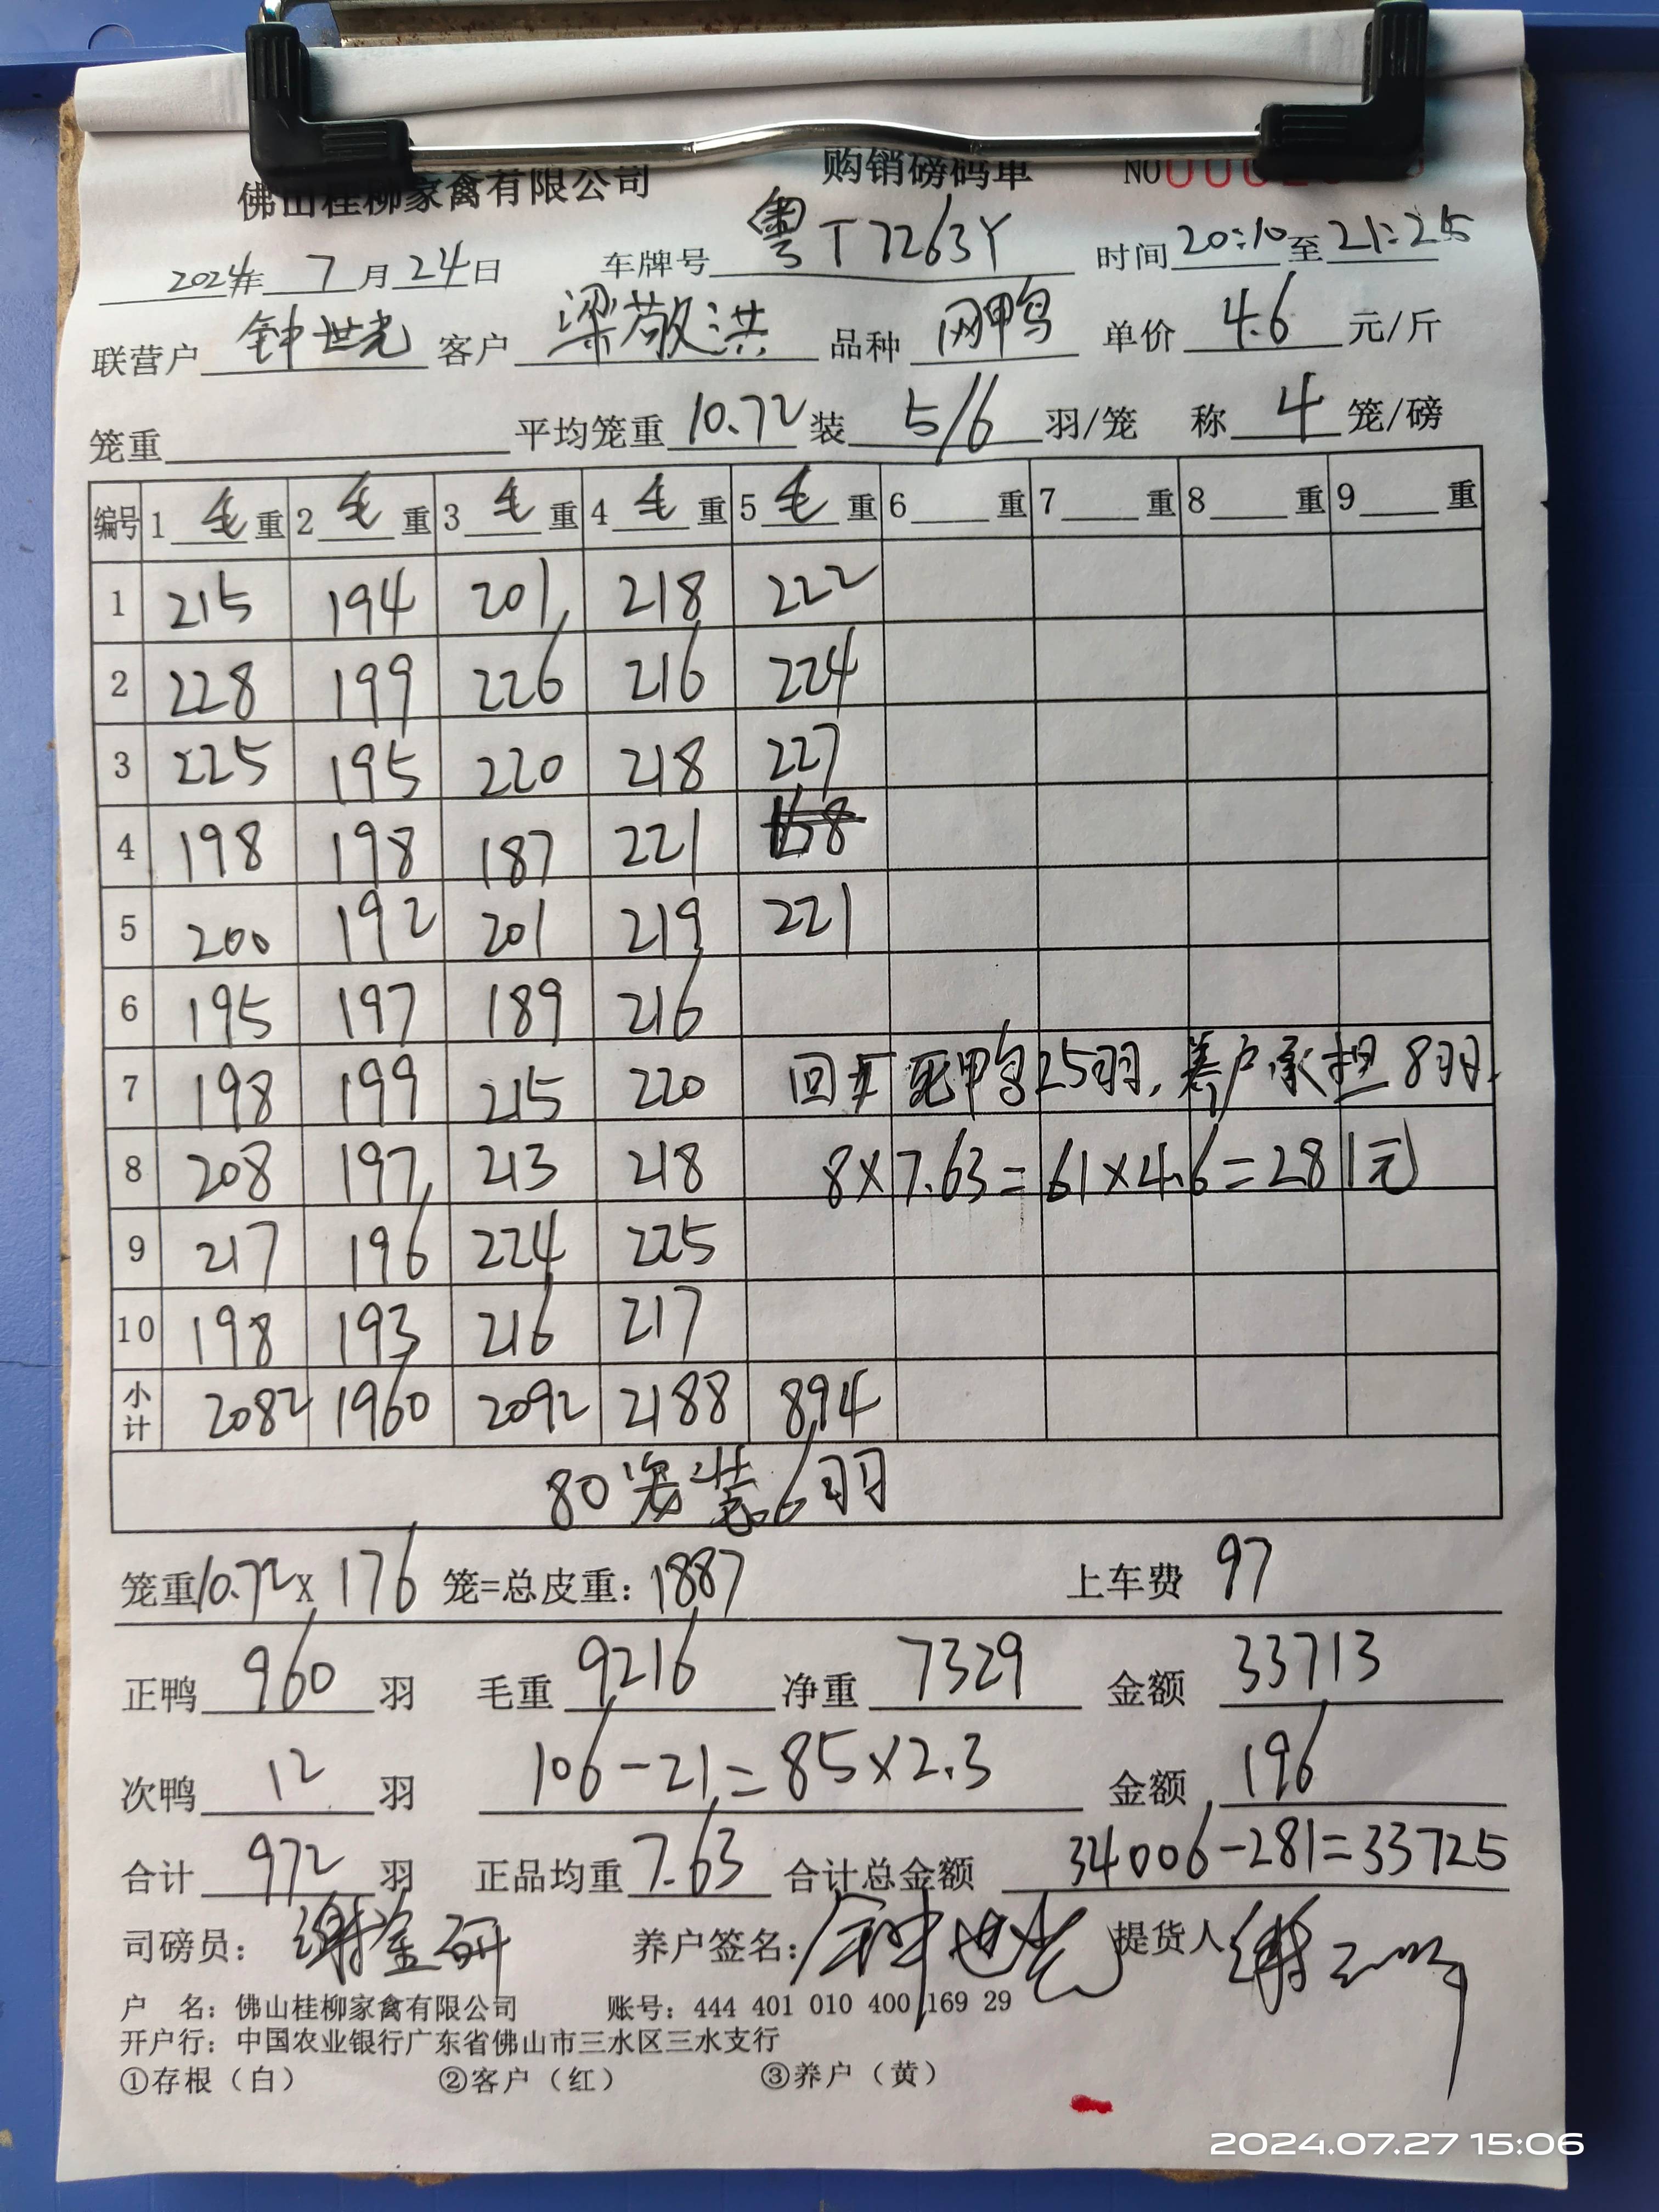 佛山桂柳家禽有限公司 购销磅码单 NO
2024年 7 月 24 日 车牌号 粤T7263Y 时间 20:10 至 21:25
联营户 钟世光 客户 梁敬洪 品种 网鸭 单价 4.6 元/斤
笼重 平均笼重 10.72 装 5/6 羽/笼 称 4 笼/磅
编号 1 毛 重 2 毛 重 3 毛 重 4 毛 重 5 毛 重 6 重 7 重 8 重 9 重
1 215 194 201 218 222
2 228 199 226 216 224
3 225 195 220 218 227
4 198 198 187 221
5 200 192 201 219 221
6 195 197 189 216
7 198 199 215 220 回厂死鸭25羽,养户承担8羽.
8 208 197 213 218 8×7.63=61×4.6=281元
9 217 196 224 225
10 198 193 216 217
小计 2082 1960 2092 2188 894
80笼装6羽
笼重10.72 X 176 笼=总皮重: 1887 上车费 97
正鸭 960 羽 毛重 9216 净重 7329 金额 33713
次鸭 12 羽 106-21=85×2.3 金额 196
合计 972 羽 正品均重 7.63 合计总金额 34006-281=33725
司磅员: 养户签名: 钟世光 提货人
户 名: 佛山桂柳家禽有限公司 账号: 444 401 010 400 169 29
开户行: 中国农业银行广东省佛山市三水区三水支行
①存根(白) ②客户(红) ③养户(黄)
2024.07.27 15:06